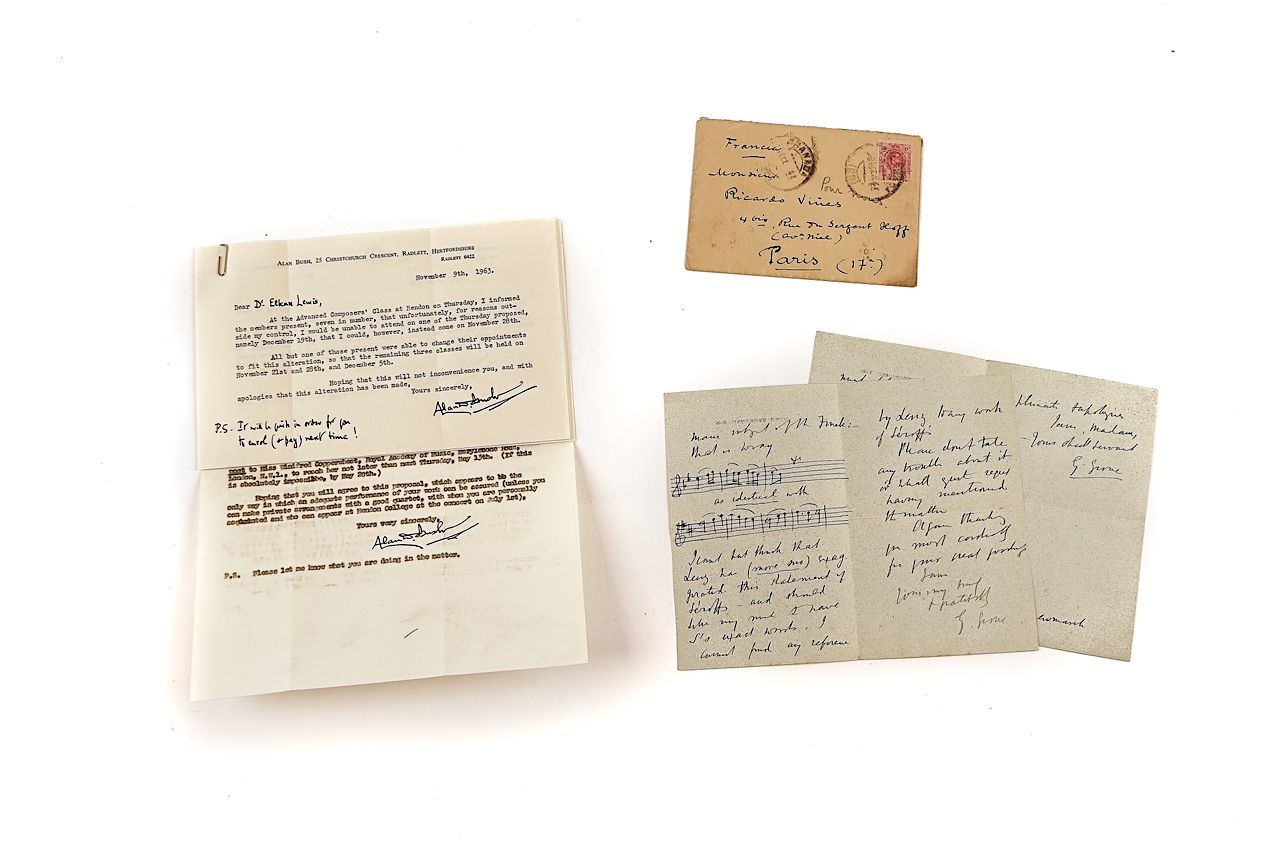 ALAN BUSH, 25 CHRISTCHURCH CRESCENT, RADLETT, HERTFORDSHIRE
RADLETT 6422
November 9th, 1963.
Dear Dr. Elkan Lewis,
At the Advanced Composers' Class at Hendon on Thursday, I informed
the members present, seven in number, that unfortunately, for reasons out-
side my control, I would be unable to attend on one of the Thursday proposed,
namely December 19th, that I could, however, instead come on November 28th.
All but one of those present were able to change their appointments
to fit this alteration, so that the remaining three classes will be held on
November 21st and 28th, and December 5th.
Hoping that this will not inconvenience you, and with
apologies that this alteration has been made,
Yours sincerely,
Alan Bush
P.S. It will be quite in order for you
to enrol (& pay) next time!
post to Miss Winifred Copperwheat, Royal Academy of Music, Marylebone Road,
London, N.W.1., to reach her not later than next Thursday, May 13th. (If this
is absolutely impossible, by May 20th.)
Hoping that you will agree to this proposal, which appears to be the
only way in which an adequate performance of your work can be assured (unless you
can make private arrangements with a good quartet, with whom you are personally
acquainted and who can appear at Hendon College at the concert on July 1st),
Yours very sincerely,
Alan Bush
P.S. Please let me know what you are doing in the matter.
Francia
GRANADA
Monsieur
Ricardo Viñes
4 bis, Rue du Sergent Hoff
(Avenue Niel)
Paris (17e)
main subject of the Finale:-
that is to say
as identical with
I can't but think that
Lenz has (more suo) exag-
gerated this statement of
Séroff's - and should
like very much to have
S's exact words. I
cannot find any reference
by Lenz to any work
of Séroff's
Please don't take
any trouble about it
or I shall quite regret
having mentioned
the matter
Again thanking
you most cordially
for your great goodness
I am
Yours very truly
& gratefully
G. Grove
I am, Madam,
Your obedt servant
G. Grove